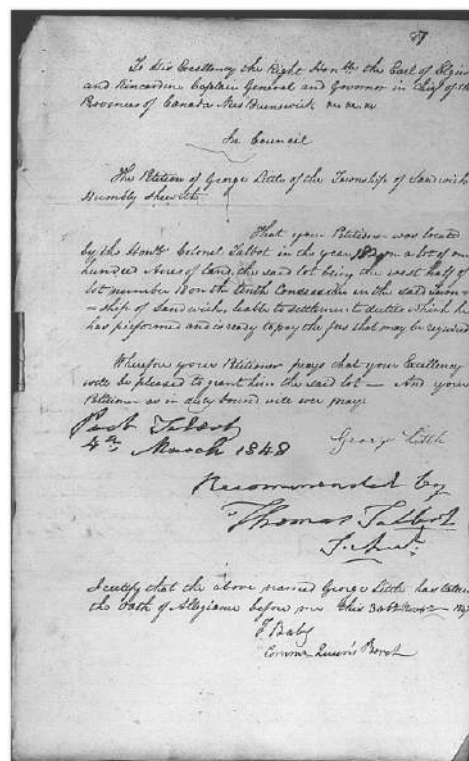 87
To His Excellency the Right Honble the Earl of Elgin
and Kincardine Captain General and Governor in Chief of the
Provinces of Canada New Brunswick
In Council
The Petition of George Little of the Township of Sandwich
Humbly Sheweth
That your Petitioner was located
by the Honble Colonel Talbot in the year on a lot of one
hundred Acres of Land, the said lot being the west half of
lot number 18 on the tenth Concession in the said town=
=ship of Sandwich, leable to settlement duties which he
has performed and is ready to pay the fees that may be required
Wherefore your Petitioner prays that your Excellency
will be pleased to grant him the said lot — And your
Petitioner as in duty bound will ever pray
Port Talbot
4th March 1848
George Little
Recommended by
Thomas Talbot
I certify that the above named George Little has taken
the Oath of Allegiance before me this
Baby
Queen's Bench